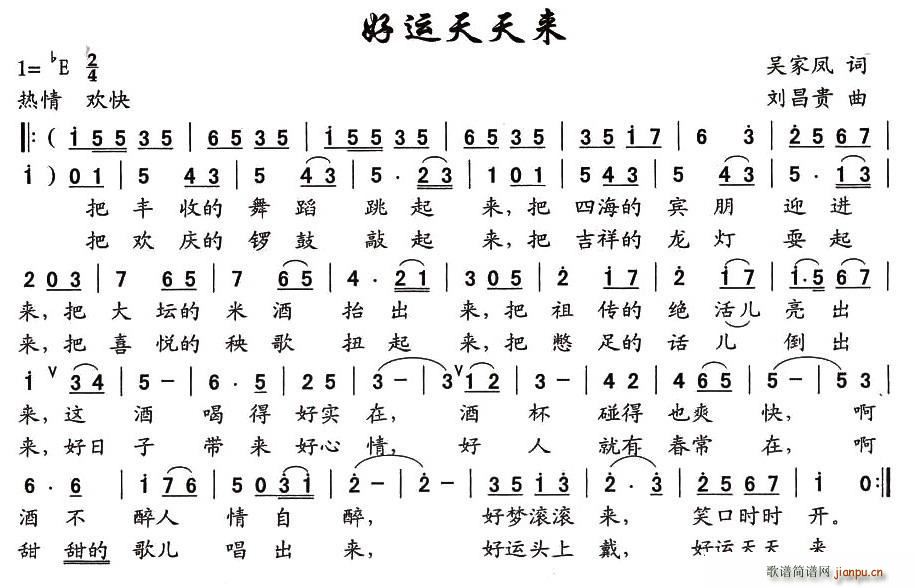 好运天天来
1= ♭E 2/4 吴家凤 词
热情 欢快 刘昌贵 曲
‖: ( i̇ 5 5 3 5 | 6 5 3 5 | i̇ 5 5 3 5 | 6 5 3 5 | 3 5 i̇ 7 | 6 3̇ | 2̇ 5 6 7 |
i̇ ) 0 1 | 5 4 3 | 5 4 3 | 5 · 2 3 | 1 0 1 | 5 4 3 | 5 4 3 | 5 · 1̇ 3 |
把 丰 收的 舞 蹈 跳 起 来，把 四海的 宾 朋 迎 进
把 欢 庆的 锣 鼓 敲 起 来，把 吉祥的 龙 灯 耍 起
2 0 3 | 7 6 5 | 7 6 5 | 4 · 2 1 | 3 0 5 | 2̇ i̇ 7 | 2̇ i̇ 7 | i̇ · 5 6 7 |
来，把 大 坛的 米 酒 抬 出 来，把 祖 传的 绝 活儿 亮 出
来，把 喜 悦的 秧 歌 扭 起 来，把 憋 足的 话 儿 倒 出
i̇ ∨ 3̇ 4 | 5 − | 6 · 5 | 2 5 | 3 − | 3 ∨ i̇ 2 | 3 − | 4 2 | 4 6 5 | 5 − | 5 3 |
来，这 酒 喝 得 好实 在， 酒 杯 碰得 也爽 快， 啊
来，好日 子 带 来 好心 情， 好 人 就有 春常 在， 啊
6 · 6 | i̇ 7 6 | 5 0 3̇ i̇ | 2̇ − | 2̇ − | 3 5 i̇ 3̇ | 2̇ · 3̇ | 2̇ 5 6 7 | i̇ 0 :‖
酒 不 醉人 情 自 醉， 好梦滚滚 来， 笑口时时 开。
甜 甜的 歌儿 唱 出 来， 好运头上 戴， 好运天天 来
歌谱简谱网
jianpu.cn